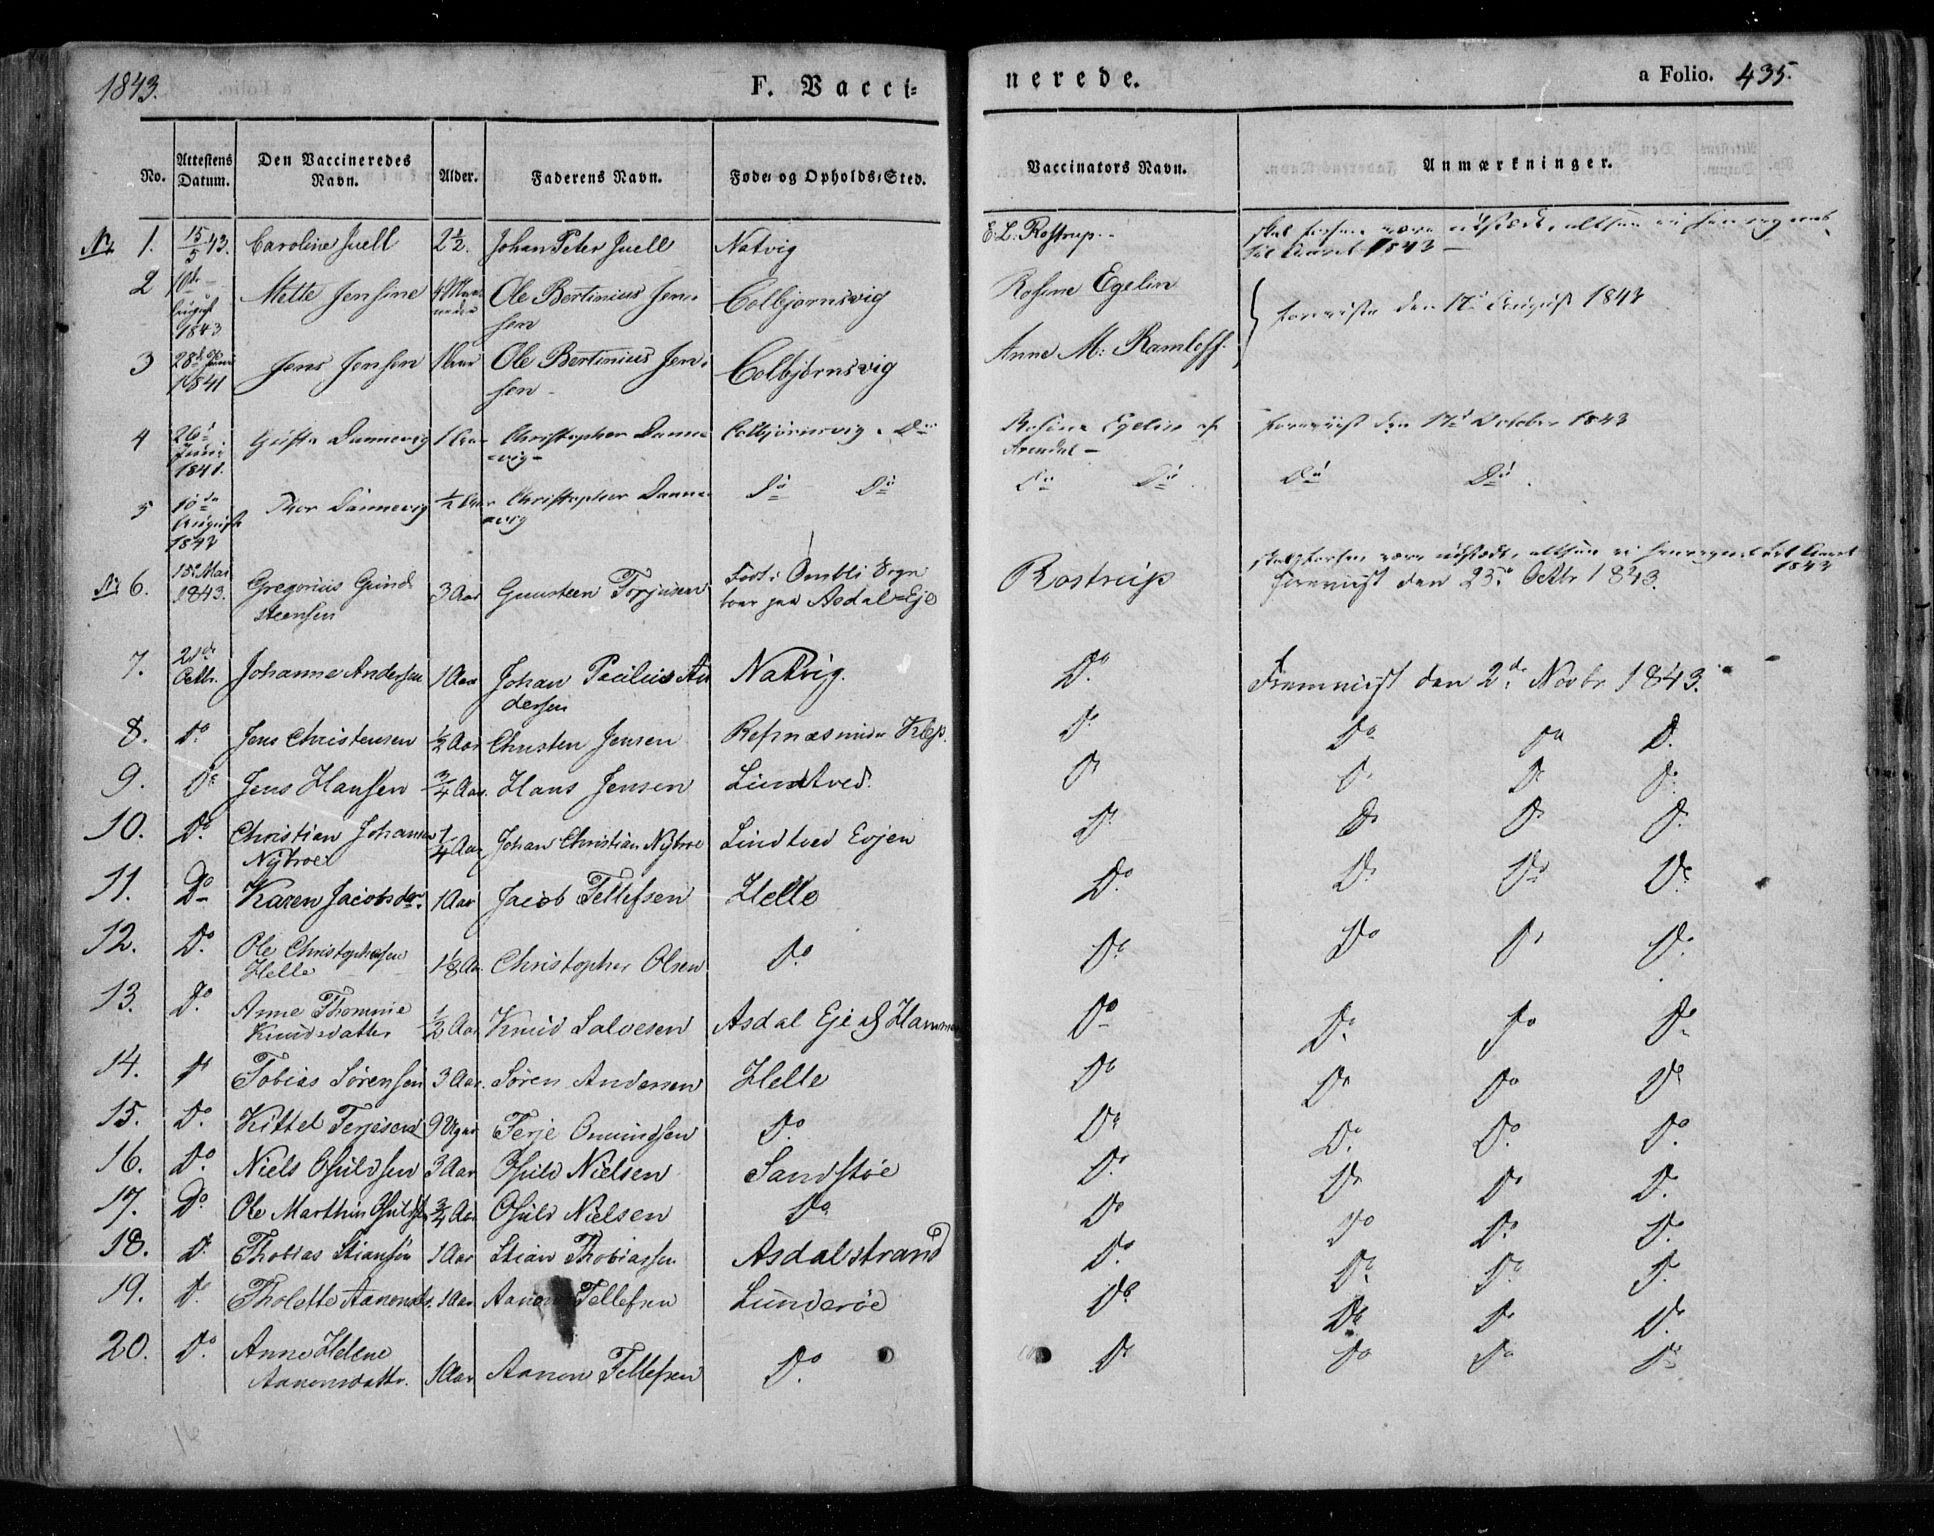 1843.
F. Vacci-
nerede.
a Folio. 435.
No. Attestens Datum. Den Vaccineredes Navn. Alder. Faderens Navn. Føde- og Opholds-Sted. Vaccinators Navn. Anmærkninger.
No 1. 15/5 43. Caroline Juell 2½. Johan Peter Juell Natvig E. L. Rostrup.
til Aaret 1843
2 10de August 1843 Mette Jensine Ole Bertinius Jensen Colbjørnsvig Rosine Egelin
foreviste den 17de August 1843
3 28de 1841 Jens Jensen 1 Aar Ole Bertinius Jensen Colbjørnsvig Anne M: Ramloff.
4 26d Juni 1841. Dannevig 1 Aar Christopher Dannevig Colbjørnsvig. Do Rosine Egelin af Arendal forevist den 17d October 1843
5 10de August 1843 Thor Dannevig ½ Aar Christopher Dannevig Do Do Do Do Do Do
No 6. 15de Mai 1843. Gregorius Gundsteensen 3 Aar Gunsteen Torjusen Født i Ombli Sogn boer paa Asdal-Eje Rostrup
Fremvist den 25de Octbr 1843.
7. 21de Octbr. Johanne Andersen 1 Aar Johan Andersen Natvig. Do. Fremvist den 2de Novbr 1843.
8. Do. Jens Christensen ½ Aar Christen Jensen Do Do Do D.
9. Do Jens Hansen ¾ Aar. Hans Jensen Lindtved. Do Do Do Do
10. Do. Christian Johansen Nybroe ¼ Aar Johan Christian Nybroe Lindtved Eigen Do Do Do Do
11. Do Karen Jacobsdtr. 1 Aar Jacob Tellefsen Helle Do. Do Do Do
12. Do. Ole Christophersen Helle 1⅛ Aar. Christopher Olsen Do. Do Do Do Do.
13. Do. Anne Thomine Knudsdatter ½ Aar Knud Salvesen Asdal Eje Do Do. Do Do
14. Do Tobias Sørensen 3 Aar. Søren Andersen Helle Do Do Do Do
15. Do. Kittel Terjesen 9 Uger Terje Omundsen Do. Do Do. Do. Do.
16. Do. Niels Osuldsen 3 Aar Osuld Nielsen Sandstøe Do. Do Do Do.
17. Do. Ole Marthin Osuldsen ¾ Aar Osuld Nielsen Do Do Do Do. Do.
18. Do Thobias Stiansen 1 Aar Stian Thobiassen Asdalstrand Do. Do. Do. Do.
19. Do. Tholette Aanonsdtr. 1 Aar Aanon Tellefsen Lunderøe Do. Do Do Do.
20. Do. Anne Helene Aanonsdattr. 1 Aar Aanon Tellefsen Do. Do Do Do Do